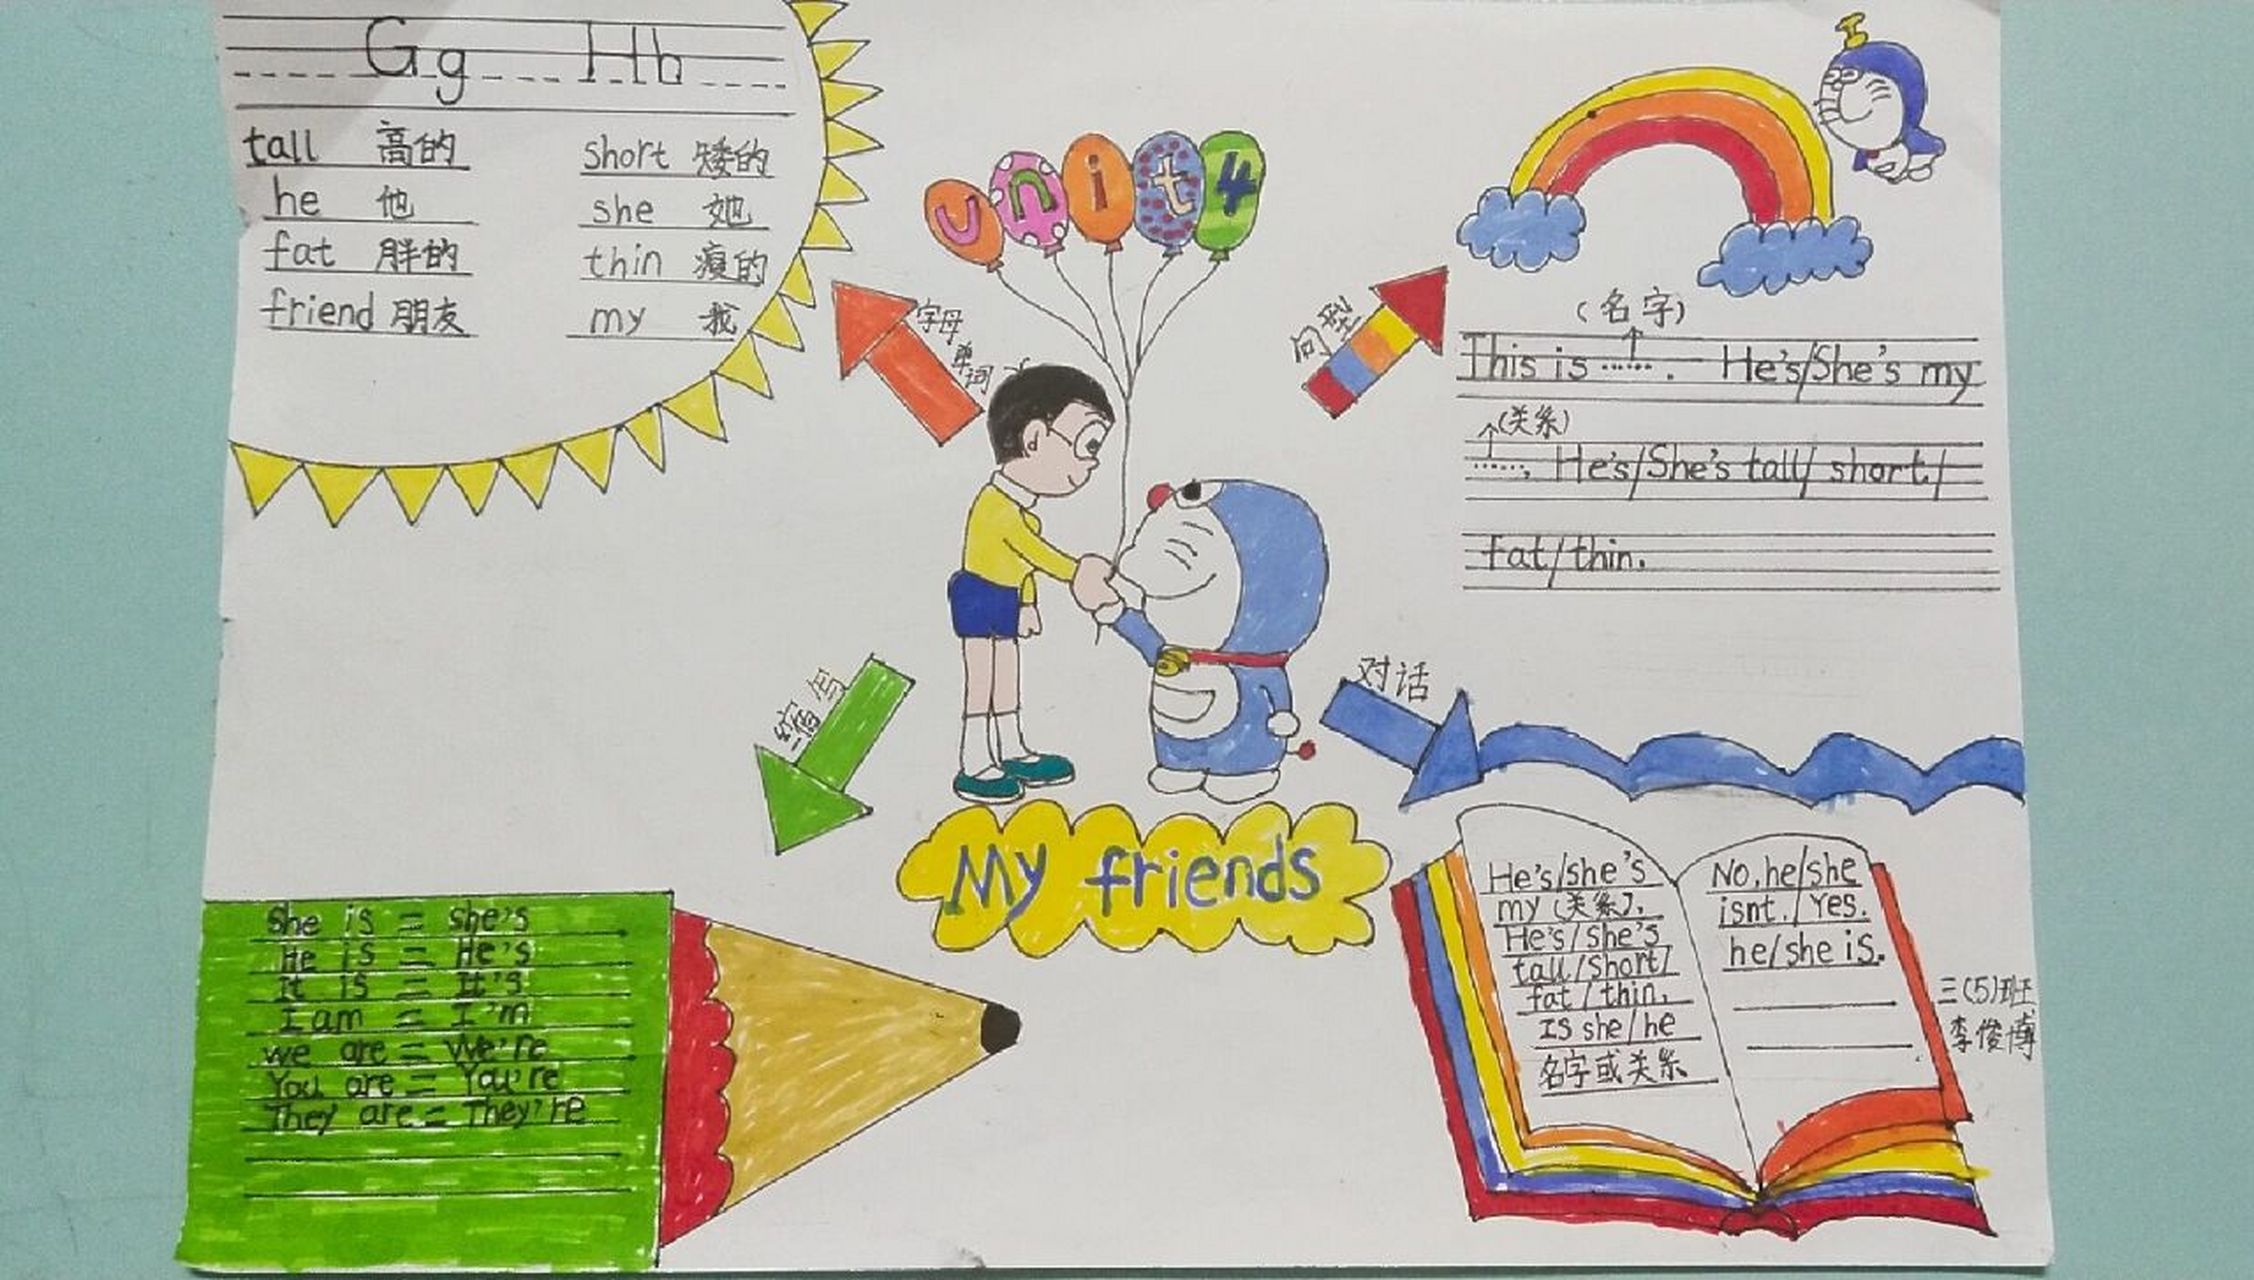 Gg Hh
tall 高的 short 矮的
he 他 she 她
fat 胖的 thin 瘦的
friend 朋友 my 我
unit 4
字母
单词
句型
(名字)
This is ······. He's/She's my
(关系)
······, He's/She's tall/ short/
fat/thin.
缩写
对话
My friends
She is = she's
He is = He's
It is = It's
I am = I'm
we are = We're
You are = You're
They are = They're
He's/she's
my (关系),
He's/she's
tall/short/
fat/thin.
Is she/he
名字或关系
No,he/she
isnt./Yes.
he/she is.
三(5)班
李俊博